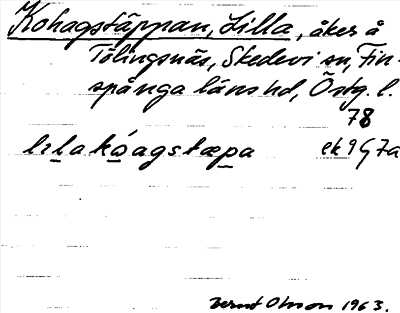 Kohagstäppan, Lilla, åker å
Tölingsnäs, Skedevi sn, Fin-
spånga läns hd, Östg. l.
78
lılakóagstæpa ek 9G7a
Bernt Olsson 1963.